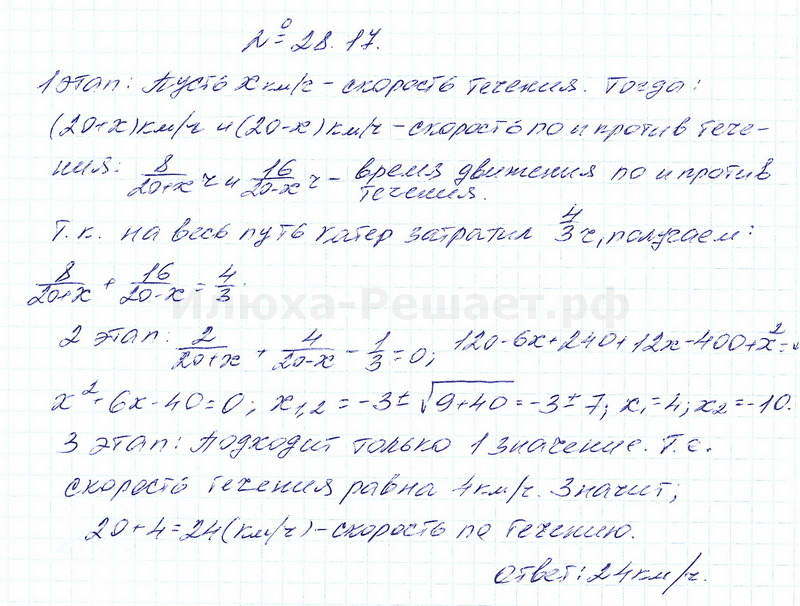 № 28.17.
1 этап: Пусть x км/ч – скорость течения. Тогда:
(20+x) км/ч и (20-x) км/ч – скорость по и против тече-
ния: 8/(20+x) ч и 16/(20-x) ч – время движения по и против
течения.
Т.к. на весь путь катер затратил 4/3 ч, получаем:
8/(20+x) + 16/(20-x) = 4/3.
Илюха-Решает.рф
2 этап: 2/(20+x) + 4/(20-x) - 1/3 = 0; 120-6x+240+12x-400+x²=
x²+6x-40=0; x₁,₂ = -3 ± √(9+40) = -3 ± 7; x₁=4; x₂=-10.
3 этап: Подходит только 1 значение. Т.е.
скорость течения равна 4 км/ч. Значит;
20+4=24 (км/ч) – скорость по течению.
Ответ: 24 км/ч.